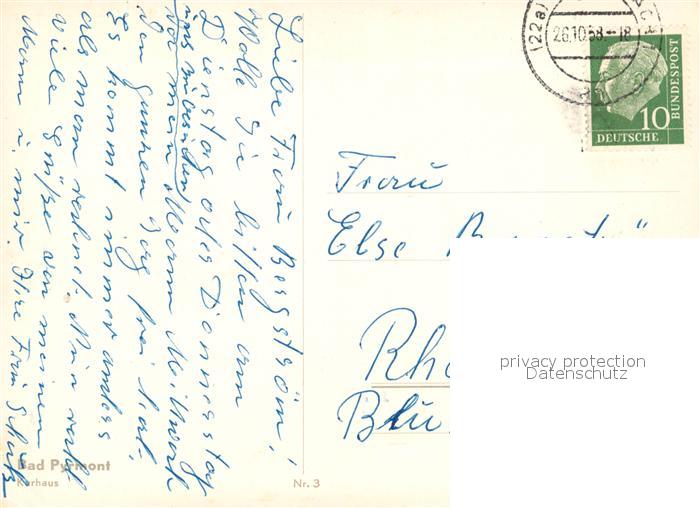 Liebe Frau Bergström!
Wolle Sie bitten am
Dienstag oder Donnerstag
uns mitbesuchen)
da mein Mann Mittwoch
den ganzen Tag frei hat.
Es kommt immer anders
als man rechnet. Nun recht
viele Grüße von meinem
Mann u. mir. Ihre Frau
Bad Pyrmont
Kurhaus
Nr. 3
(22a)
26.10.58.-18
10
DEUTSCHE
BUNDESPOST
Frau
Else
Rh
Blu
privacy protection
Datenschutz